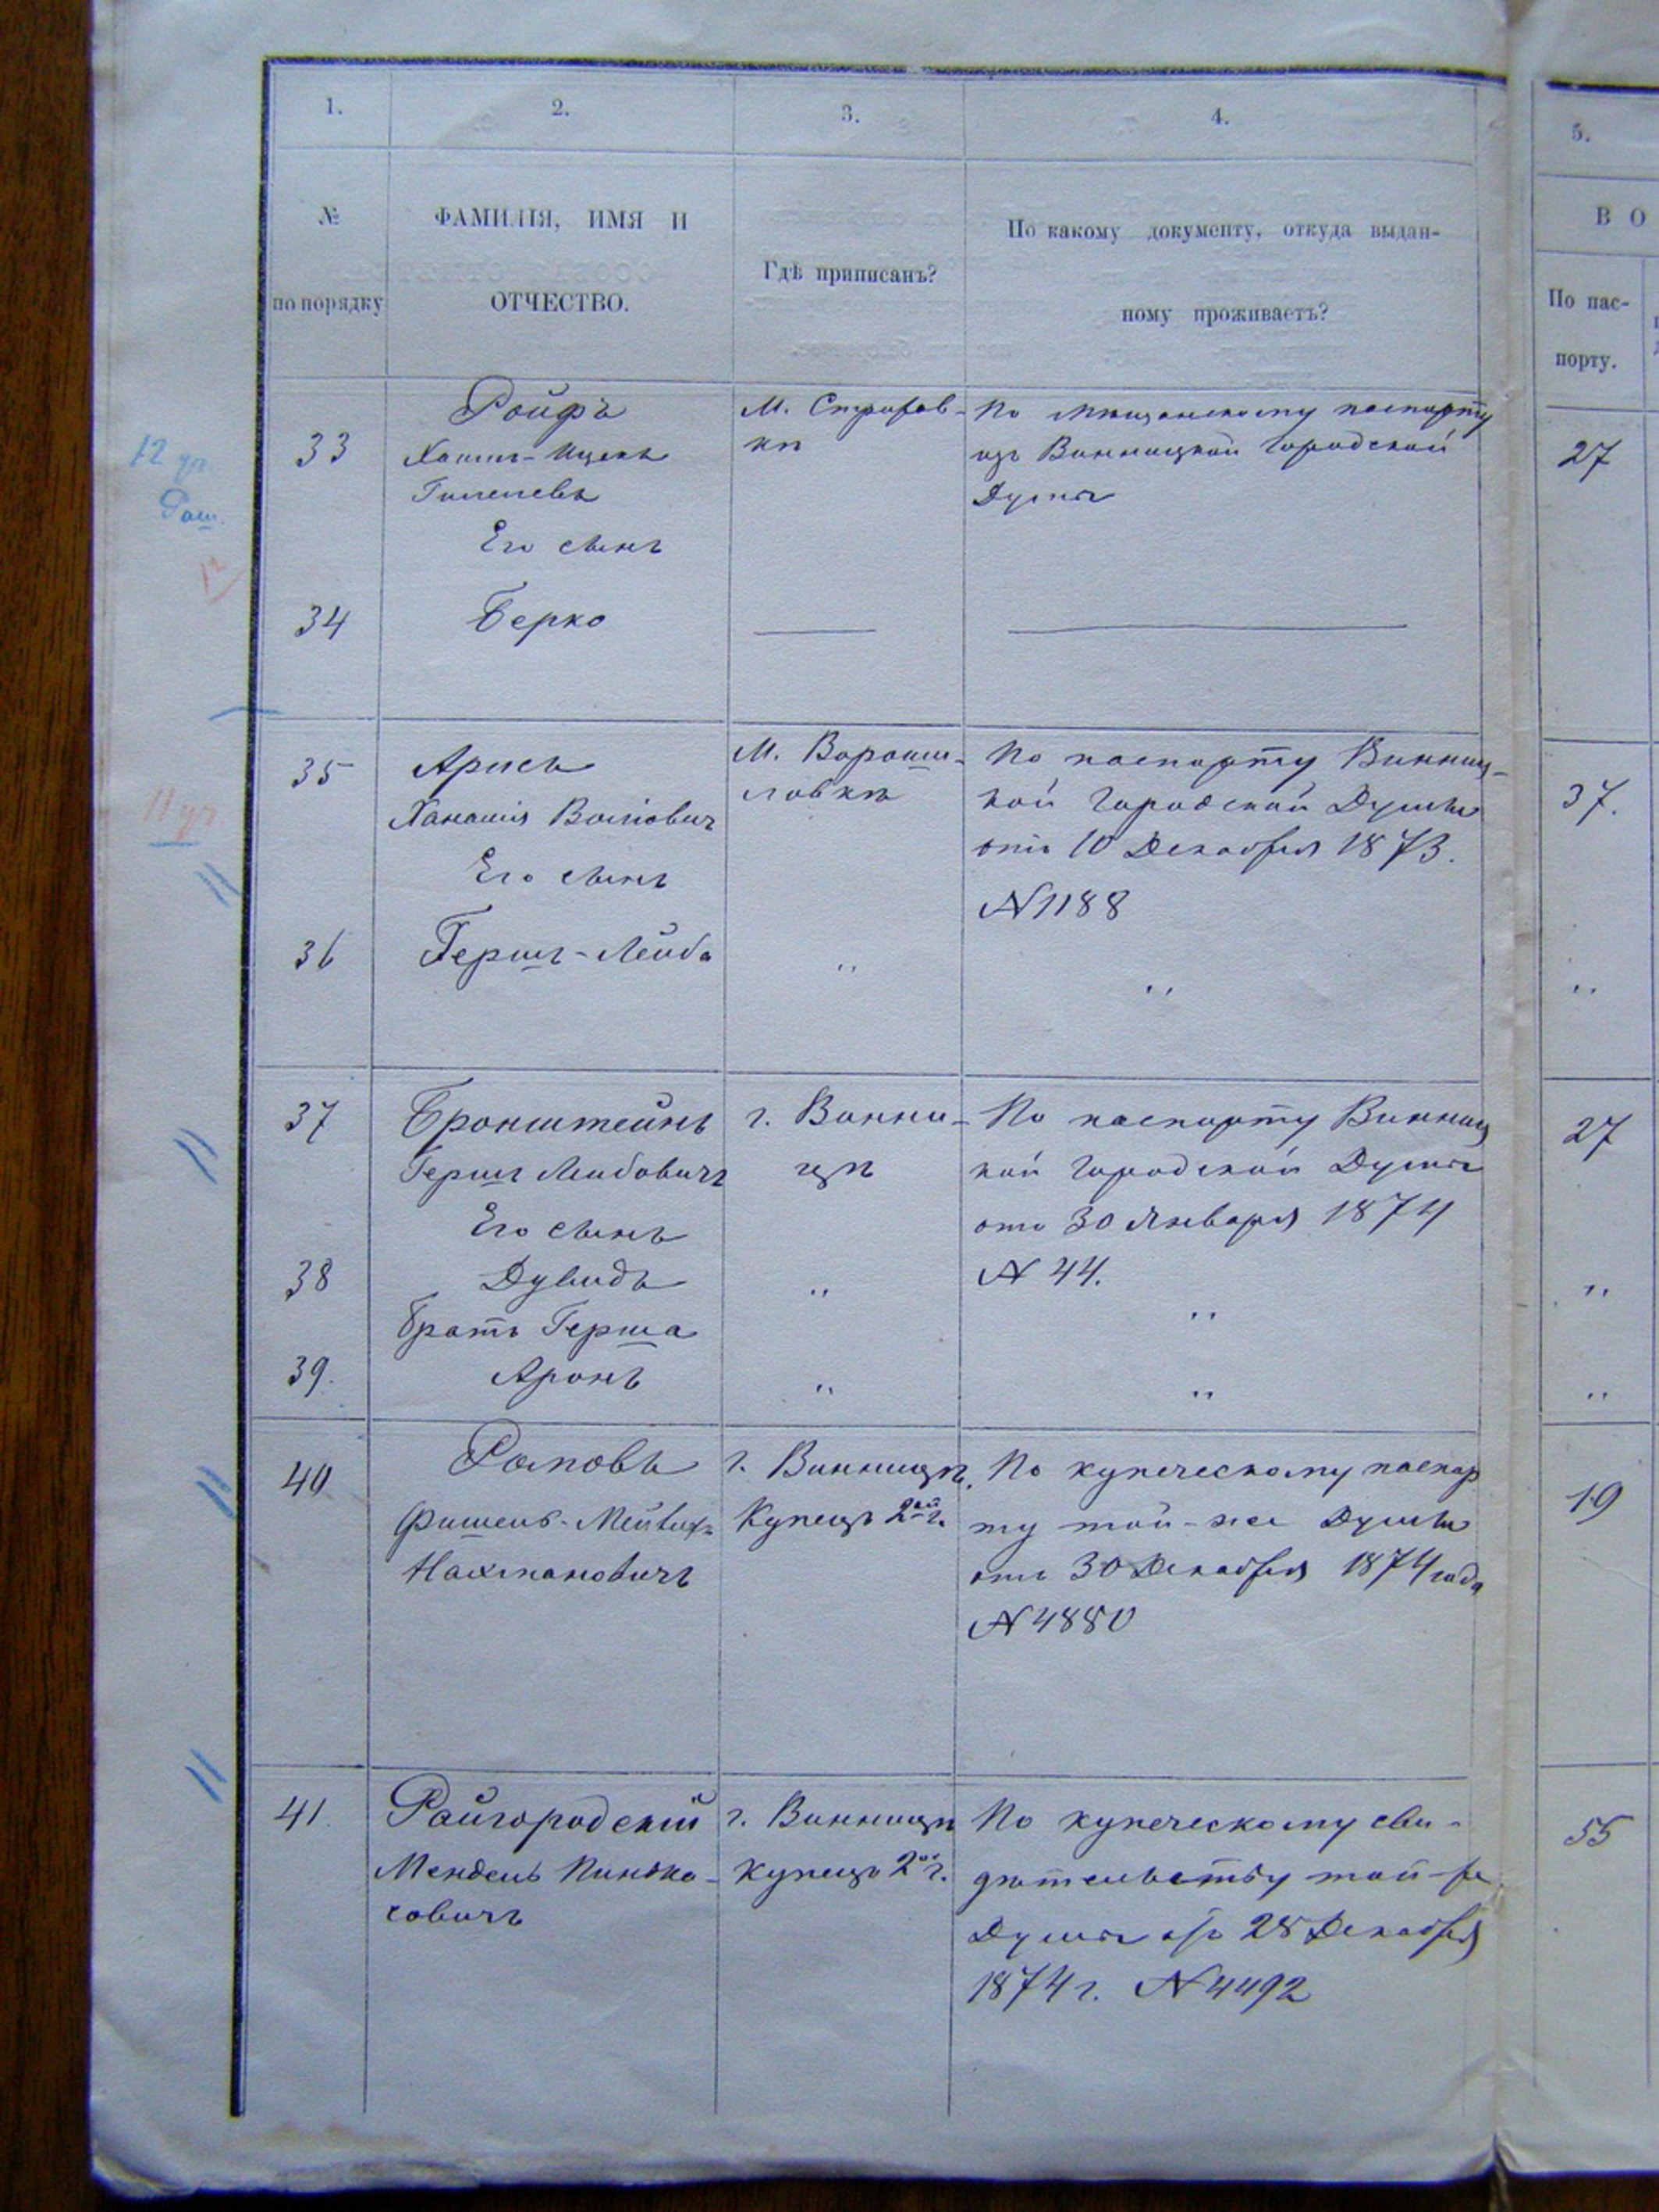 1.
2.
3.
4.
5.
№
по порядку
ФАМИЛІЯ, ИМЯ И
ОТЧЕСТВО.
Гдѣ приписанъ?
По какому документу, откуда выдан-
ному проживаетъ?
В О
По пас-
порту.
12 уч.
33
Ройфъ
Хаимъ-Ицекъ
Его сынъ
М.
По мѣщанскому паспорту
изъ Винницкой Городской
Думы
27
34
Берко
11 уч
35
Арисъ
Его сынъ
М. Вороши-
ловкѣ
По паспорту Винниц-
кой Городской Думы
отъ 10 Декабря 1873.
N 1188
37.
36
Гершъ-Лейба
„
„
„
37
Бронштейнъ
Гершъ Лейбовичъ
Его сынъ
г. Винни-
цѣ
По паспорту Винниц
кой Городской Думы
отъ 30 Января 1874
N 44.
27
38
Дувидъ
„
„
„
братъ Герша
39.
Аронъ
„
„
„
40
Фишель-
Нахмановичъ
г. Винницѣ.
Купецъ 2ой г.
По купеческому паспор
ту той-же Думы
отъ 30 Декабря 1874 года
N 4880
19
41.
Райгородскій
Мендель Пинька-
совичъ
г. Винницѣ
Купецъ 2ой г.
По купеческому сви-
дѣтельству той-же
Думы 28 Декабря
1874 г. N 4492
55